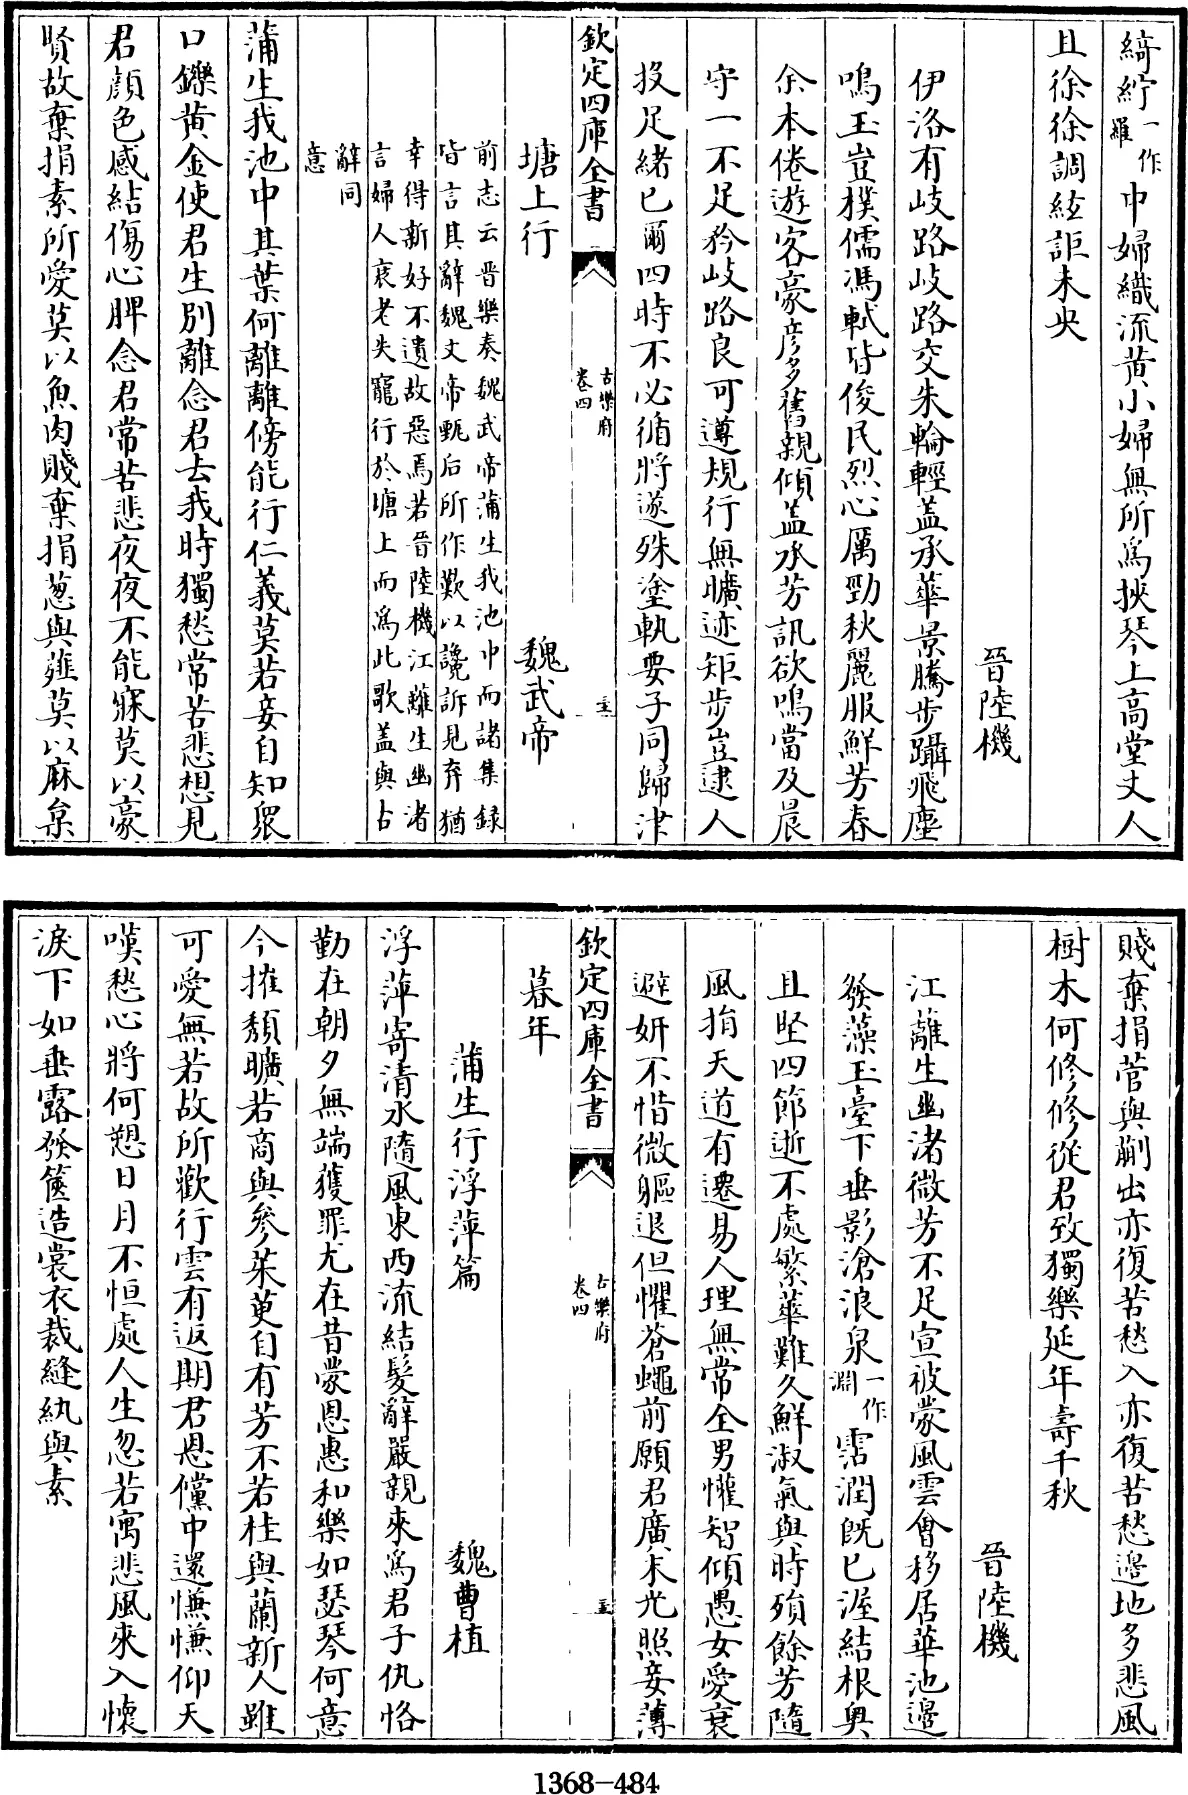 綺紵一作羅中婦織流黄小婦無所為挾琴上高堂丈人
且徐徐調絃詎未央
晉陸機
伊洛有岐路岐路交朱輪輕盖承華景騰步躡飛塵
鳴玉豈樸儒馮軾皆俊民烈心厲勁秋麗服鮮芳春
余本倦遊客豪彦多舊親傾盖承芳訊欲鳴當及晨
守一不足矜岐路良可遵規行無曠迹矩步豈逮人
投足緒已爾四時不必循將遂殊塗軌要子同歸津
欽定四庫全書
古樂府
卷四
塘上行
魏武帝
前志云晋樂奏魏武帝蒲生我池中而諸集録
皆言其辭魏文帝甄后所作歎以讒訴見弃猶
幸得新好不遺故惡焉若晉陸機江蘺生幽渚
言婦人衰老失寵行於塘上而為此歌盖與古
辭同
意
蒲生我池中其葉何離離傍能行仁義莫若妾自知衆
口鑠黄金使君生别離念君去我時獨愁常苦悲想見
君顔色感結傷心脾念君常苦悲夜夜不能寐莫以豪
賢故棄捐素所愛莫以魚肉賤棄捐葱與薤莫以麻枲
賤棄捐菅與蒯出亦復苦愁入亦復苦愁邉地多悲風
樹木何修修從君致獨樂延年壽千秋
晉陸機
江蘺生幽渚微芳不足宣被蒙風雲會移居華池邉
發藻玉臺下垂影滄浪泉一作淵霑潤既已渥結根奥
且堅四節逝不處繁華難久鮮淑氣與時殞餘芳隨
風捐天道有遷易人理無常全男懽智傾愚女愛衰
避妍不惜微軀退但懼蒼蠅前願君廣末光照妾薄
欽定四庫全書
古樂府
卷四
暮年
蒲生行浮萍篇
魏曹植
浮萍寄清水隨風東西流結髮辭嚴親來為君子仇恪
勤在朝夕無端獲罪尤在昔蒙恩惠和樂如瑟琴何意
今摧頽曠若商與參茱萸自有芳不若桂與蘭新人雖
可愛無若故所歡行雲有返期君恩儻中還慊慊仰天
嘆愁心將何愬日月不恒處人生忽若寓悲風來入懷
淚下如垂露發篋造裳衣裁縫紈與素
1368-484